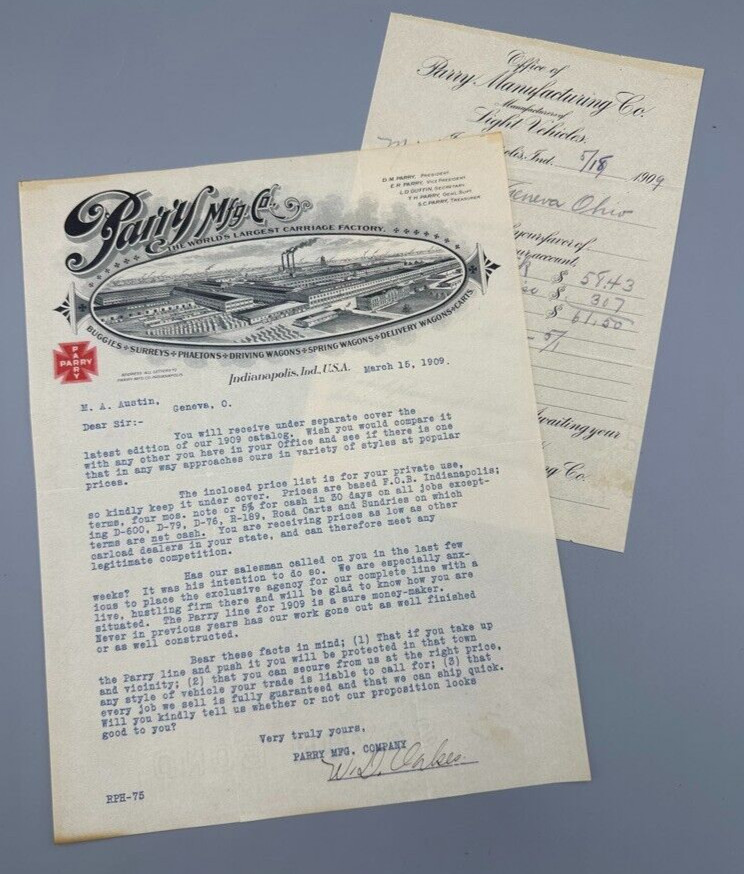 Parry Mfg. Co.
THE WORLD'S LARGEST CARRIAGE FACTORY.
D. M. PARRY, PRESIDENT
E. R. PARRY, VICE PRESIDENT
L. D. GUFFIN, SECRETARY
T. H. PARRY, GENL. SUPT.
S. C. PARRY, TREASURER
BUGGIES + SURREYS + PHAETONS + DRIVING WAGONS + SPRING WAGONS + DELIVERY WAGONS + CARTS
PARRY
PARRY
ADDRESS ALL LETTERS TO
PARRY MFG. CO. INDIANAPOLIS.
Indianapolis, Ind., U.S.A. March 15, 1909.
M. A. Austin,
Geneva, O.
Dear Sir:-
You will receive under separate cover the
latest edition of our 1909 catalog. Wish you would compare it
with any other you have in your Office and see if there is one
that in any way approaches ours in variety of styles at popular
prices.
The inclosed price list is for your private use,
so kindly keep it under cover. Prices are based F.O.B. Indianapolis;
terms, four mos. note or 5% for cash in 30 days on all jobs except-
ing D-600, D-79, D-76, R-189, Road Carts and Sundries on which
terms are net cash. You are receiving prices as low as other
carload dealers in your state, and can therefore meet any
legitimate competition.
Has our salesman called on you in the last few
weeks? It was his intention to do so. We are especially anx-
ious to place the exclusive agency for our complete line with a
live, hustling firm there and will be glad to know how you are
situated. The Parry line for 1909 is a sure money-maker.
Never in previous years has our work gone out as well finished
or as well constructed.
Bear these facts in mind; (1) That if you take up
the Parry line and push it you will be protected in that town
and vicinity; (2) that you can secure from us at the right price,
any style of vehicle your trade is liable to call for; (3) that
every job we sell is fully guaranteed and that we can ship quick.
Will you kindly tell us whether or not our proposition looks
good to you?
Very truly yours,
PARRY MFG. COMPANY
W. D. Oakes.
RPH-75
Office of
Parry Manufacturing Co.
Manufacturers of
Light Vehicles.
Ind. 5/18 1909
Geneva Ohio
your favor of
your account,
$ 58.43
$ 307
$ 61.50
5/1
Awaiting your
Co.